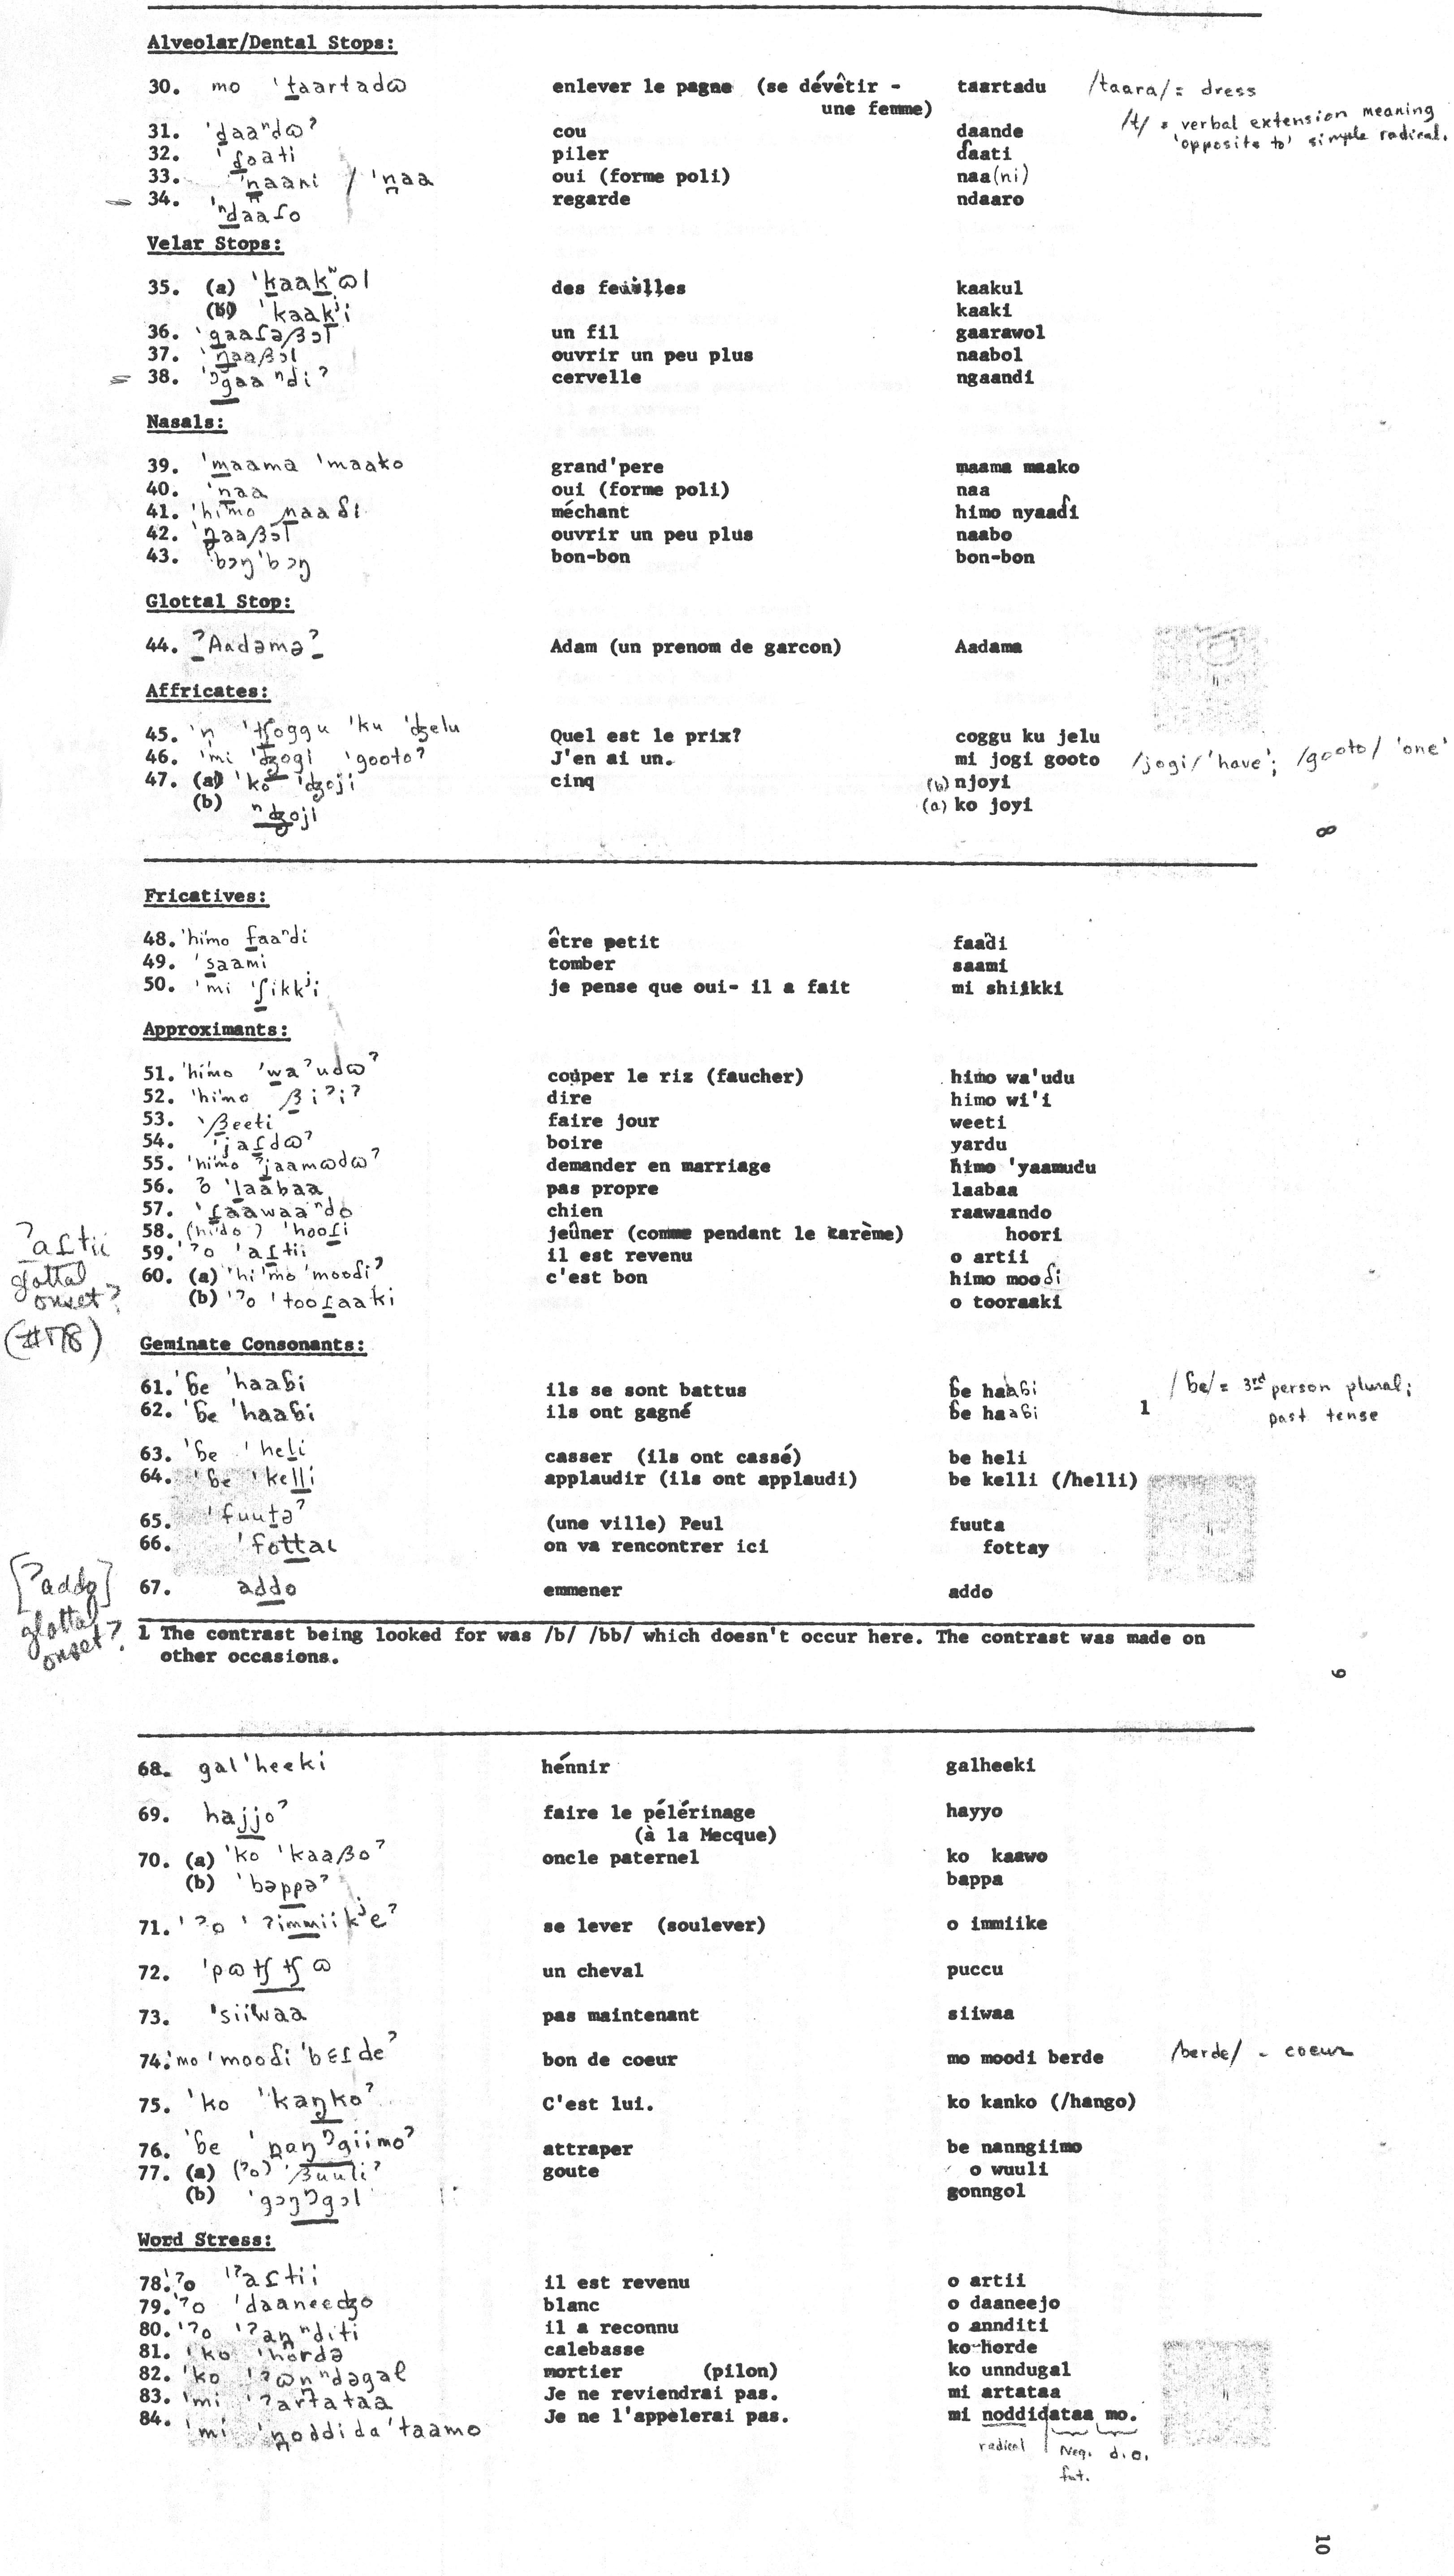 Alveolar/Dental Stops:
30. mo ˈtaartadɷ enlever le pagne (se dévêtir - taartadu /taara/ = dress
une femme) /t/ = verbal extension meaning
31. ˈdaaⁿdɷˀ cou daande 'opposite to' simple radical.
32. ˈɗaati piler ɗaati
33. ˈn̪aani / ˈn̪aa oui (forme poli) naa(ni)
34. ˈⁿdaaɾo regarde ndaaro
Velar Stops:
35. (a) ˈkaakʷɷl des feuilles kaakul
(b) ˈkaakʲi kaaki
36. ˈgaaɾəβɔl un fil gaarawol
37. ˈŋaaβɔl ouvrir un peu plus naabol
38. ˈᵑgaaⁿdiˀ cervelle ngaandi
Nasals:
39. ˈmaama ˈmaako grand'pere maama maako
40. ˈnaa oui (forme poli) naa
41. ˈhimo ɲaaɗi méchant himo nyaaɗi
42. ˈŋaaβɔl ouvrir un peu plus naabo
43. ˈbɔŋˈbɔŋ bon-bon bon-bon
Glottal Stop:
44. ˀAadəməˀ Adam (un prenom de garcon) Aadama
Affricates:
45. ˈn ˈʧoggu ˈku ˈʤelu Quel est le prix? coggu ku jelu
46. ˈmi ˈʤogi ˈgootoˀ J'en ai un. mi jogi gooto /jogi/ 'have'; /gooto/ 'one'
47. (a) ˈko ˈʤoji cinq (b) njoyi
(b) ⁿʤoji (a) ko joyi
8
Fricatives:
48. ˈhimo faaⁿdi être petit faaⁿdi
49. ˈsaami tomber saami
50. ˈmi ˈʃikkʲi je pense que oui- il a fait mi shiikki
Approximants:
51. ˈhimo ˈwaˀudɷˀ couper le riz (faucher) himo wa'udu
52. ˈhimo βiˀiˀ dire himo wi'i
53. ˈβeeti faire jour weeti
54. ˈjaɾdɷˀ boire yardu
55. ˈhimo ˀjaamɷdɷˀ demander en marriage himo 'yaamudu
56. ˀo ˈlaabaa pas propre laabaa
57. ˈɾaawaaⁿdo chien raawaando
58. (hiɗo) ˈhooɾi jeûner (comme pendant le carème) hoori
59. ˈˀo ˈaɾtii il est revenu o artii
60. (a) ˈhiˈmo ˈmooɗiˀ c'est bon himo mooɗi
(b) ˈˀo ˈtooɾaaki o tooraaki
ˀaɾtii
glottal
onset?
(#78)
Geminate Consonants:
61. ˈɓe ˈhaaɓi ils se sont battus ɓe haaɓi /ɓe/ = 3rd person plural;
62. ˈɓe ˈhaaɓi ils ont gagné ɓe haaɓi 1 past tense
63. ˈɓe ˈheli casser (ils ont cassé) be heli
64. ˈɓe ˈkelli applaudir (ils ont applaudi) be kelli (/helli)
65. ˈfuutəˀ (une ville) Peul fuuta
66. ˈfottaɩ on va rencontrer ici fottay
67. addo emmener addo
[ˀaddo]
glottal
onset?
1 The contrast being looked for was /b/ /bb/ which doesn't occur here. The contrast was made on
other occasions.
9
68. galˈheeki hénnir galheeki
69. hajjoˀ faire le pélérinage hayyo
(à la Mecque)
70. (a) ˈko ˈkaaβoˀ oncle paternel ko kaawo
(b) ˈbəppəˀ bappa
71. ˈˀo ˈˀimmiikʲeˀ se lever (soulever) o immiike
72. ˈpɷʧʧɷ un cheval puccu
73. ˈsiiˈwaa pas maintenant siiwaa
74. ˈmo ˈmooɗi ˈbɛɾdeˀ bon de coeur mo moodi berde /berde/ - coeur
75. ˈko ˈkaŋkoˀ C'est lui. ko kanko (/hango)
76. ˈɓe ˈnaŋᵑgiimoˀ attraper be nanngiimo
77. (a) (ˀo) ˈβuuliˀ goute o wuuli
(b) ˈgɔŋᵑgɔl gonngol
Word Stress:
78. ˈˀo ˈˀaɾtii il est revenu o artii
79. ˈˀo ˈdaaneeʤo blanc o daaneejo
80. ˈˀo ˈˀanⁿditi il a reconnu o annditi
81. ˈko ˈhordə calebasse ko horde
82. ˈko ˈˀɷnⁿdəgal mortier (pilon) ko unndugal
83. ˈmi ˈˀartataa Je ne reviendrai pas. mi artataa
84. ˈmi ˈn̪oddidaˈtaamo Je ne l'appèlerai pas. mi noddidataa mo.
radical Neg. d.o.
fut.
10